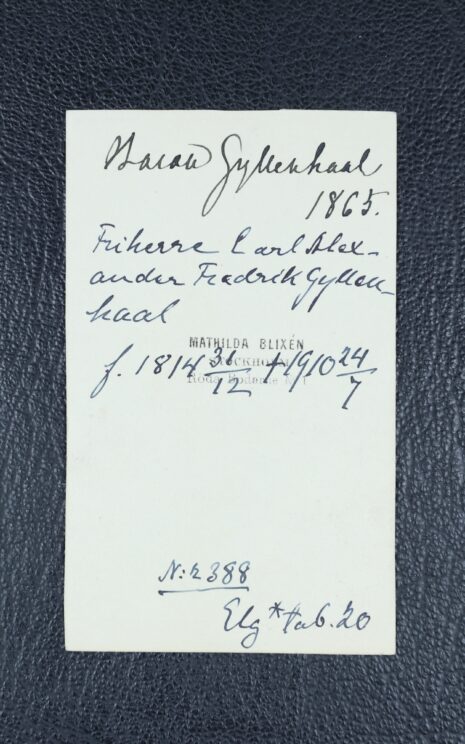 Baron Gyllenhaal
1865.
Friherre Carl Alex-
ander Fredrik Gyllen-
haal
MATHILDA BLIXÉN
STOCKHOLM
Röda Bodarne
f. 1814 31/12 †1910 24/7
N:2388
Elg* tab. 20